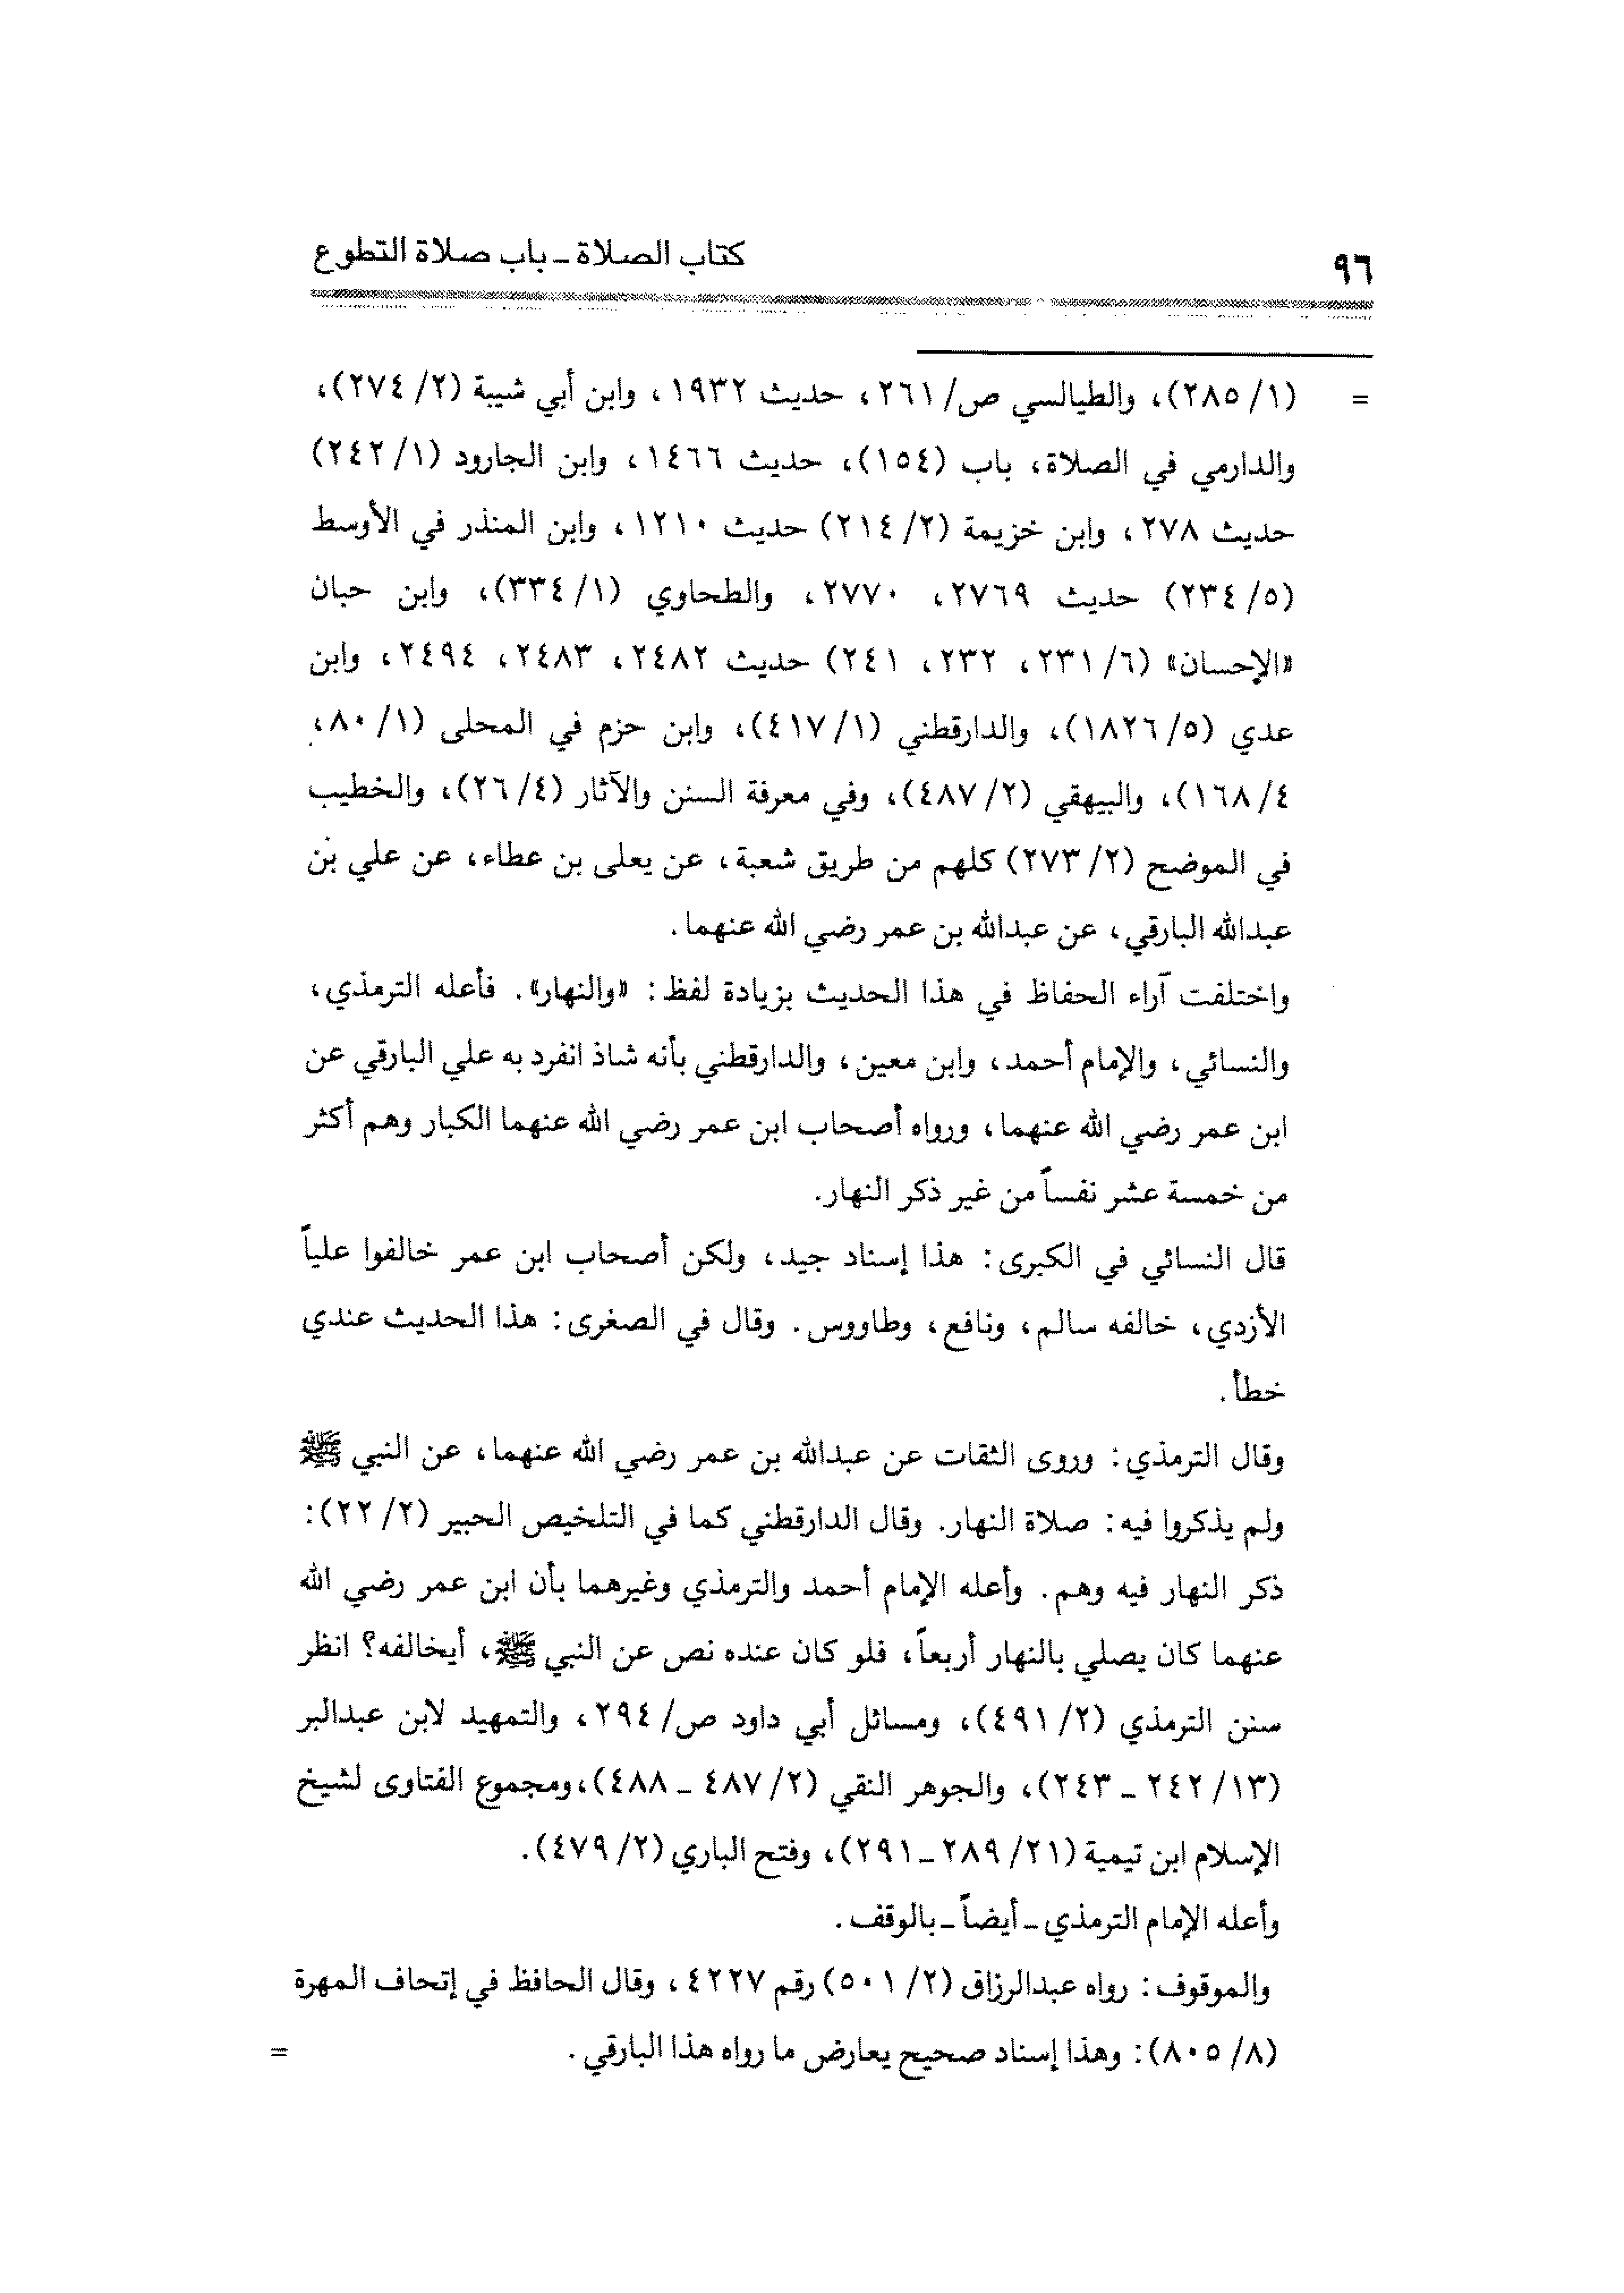 ٩٦
كتاب الصلاة ـ باب صلاة التطوع
= (١/ ٢٨٥)، والطيالسي ص/ ٢٦١، حديث ١٩٣٢، وابن أبي شيبة (٢/ ٢٧٤)،
والدارمي في الصلاة، باب (١٥٤)، حديث ١٤٦٦، وابن الجارود (١/ ٢٤٢)
حديث ٢٧٨، وابن خزيمة (٢/ ٢١٤) حديث ١٢١٠، وابن المنذر في الأوسط
(٥/ ٢٣٤) حديث ٢٧٦٩، ٢٧٧٠، والطحاوي (١/ ٣٣٤)، وابن حبان
«الإحسان» (٦/ ٢٣١، ٢٣٢، ٢٤١) حديث ٢٤٨٢، ٢٤٨٣، ٢٤٩٤، وابن
عدي (٥/ ١٨٢٦)، والدارقطني (١/ ٤١٧)، وابن حزم في المحلى (١/ ٨٠،
٤/ ١٦٨)، والبيهقي (٢/ ٤٨٧)، وفي معرفة السنن والآثار (٤/ ٢٦)، والخطيب
في الموضح (٢/ ٢٧٣) كلهم من طريق شعبة، عن يعلى بن عطاء، عن علي بن
عبدالله البارقي، عن عبدالله بن عمر رضي الله عنهما.
واختلفت آراء الحفاظ في هذا الحديث بزيادة لفظ: «والنهار». فأعله الترمذي،
والنسائي، والإمام أحمد، وابن معين، والدارقطني بأنه شاذ انفرد به علي البارقي عن
ابن عمر رضي الله عنهما، ورواه أصحاب ابن عمر رضي الله عنهما الكبار وهم أكثر
من خمسة عشر نفساً من غير ذكر النهار.
قال النسائي في الكبرى: هذا إسناد جيد، ولكن أصحاب ابن عمر خالفوا علياً
الأزدي، خالفه سالم، ونافع، وطاووس. وقال في الصغرى: هذا الحديث عندي
خطأ.
وقال الترمذي: وروى الثقات عن عبدالله بن عمر رضي الله عنهما، عن النبي ﷺ
ولم يذكروا فيه: صلاة النهار. وقال الدارقطني كما في التلخيص الحبير (٢/ ٢٢):
ذكر النهار فيه وهم. وأعله الإمام أحمد والترمذي وغيرهما بأن ابن عمر رضي الله
عنهما كان يصلي بالنهار أربعاً، فلو كان عنده نص عن النبي ﷺ، أيخالفه؟ انظر
سنن الترمذي (٢/ ٤٩١)، ومسائل أبي داود ص/ ٢٩٤، والتمهيد لابن عبدالبر
(١٣/ ٢٤٢ ـ ٢٤٣)، والجوهر النقي (٢/ ٤٨٧ ـ ٤٨٨)، ومجموع الفتاوى لشيخ
الإسلام ابن تيمية (٢١/ ٢٨٩ ـ ٢٩١)، وفتح الباري (٢/ ٤٧٩).
وأعله الإمام الترمذي ـ أيضاً ـ بالوقف.
والموقوف: رواه عبدالرزاق (٢/ ٥٠١) رقم ٤٢٢٧، وقال الحافظ في إتحاف المهرة
(٨/ ٨٠٥): وهذا إسناد صحيح يعارض ما رواه هذا البارقي. =